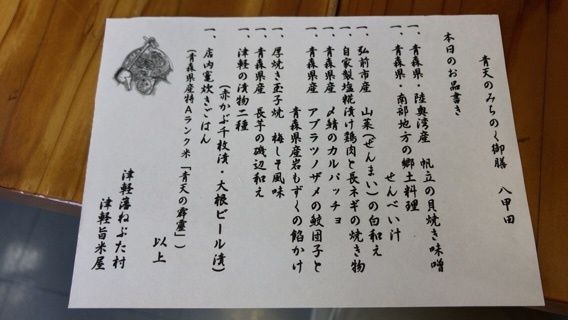 青天のみちのく御膳　八甲田
本日のお品書き
一、青森県・陸奥湾産　帆立の貝焼き味噌
一、青森県・南部地方の郷土料理　せんべい汁
一、弘前市産　山菜(ぜんまい)の白和え
一、自家製塩糀漬け鶏肉と長ネギの焼き物
一、青森県産　〆鯖のカルパッチョ
一、青森県産　アブラツノザメの鮫団子と
青森県産岩もずくの餡かけ
一、厚焼き玉子焼　梅しそ風味
一、青森県産　長芋の磯辺和え
一、津軽の漬物二種
(赤かぶ千枚漬・大根ビール漬)
一、店内竃炊きごはん
(青森県産特Aランク米「青天の霹靂」)
以上
津軽藩ねぷた村
津軽旨米屋